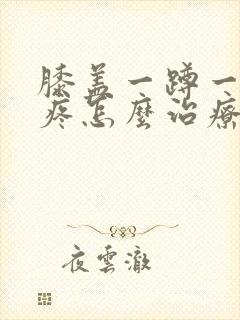 膝盖一蹲一
疼怎麼治療
夜雲澈